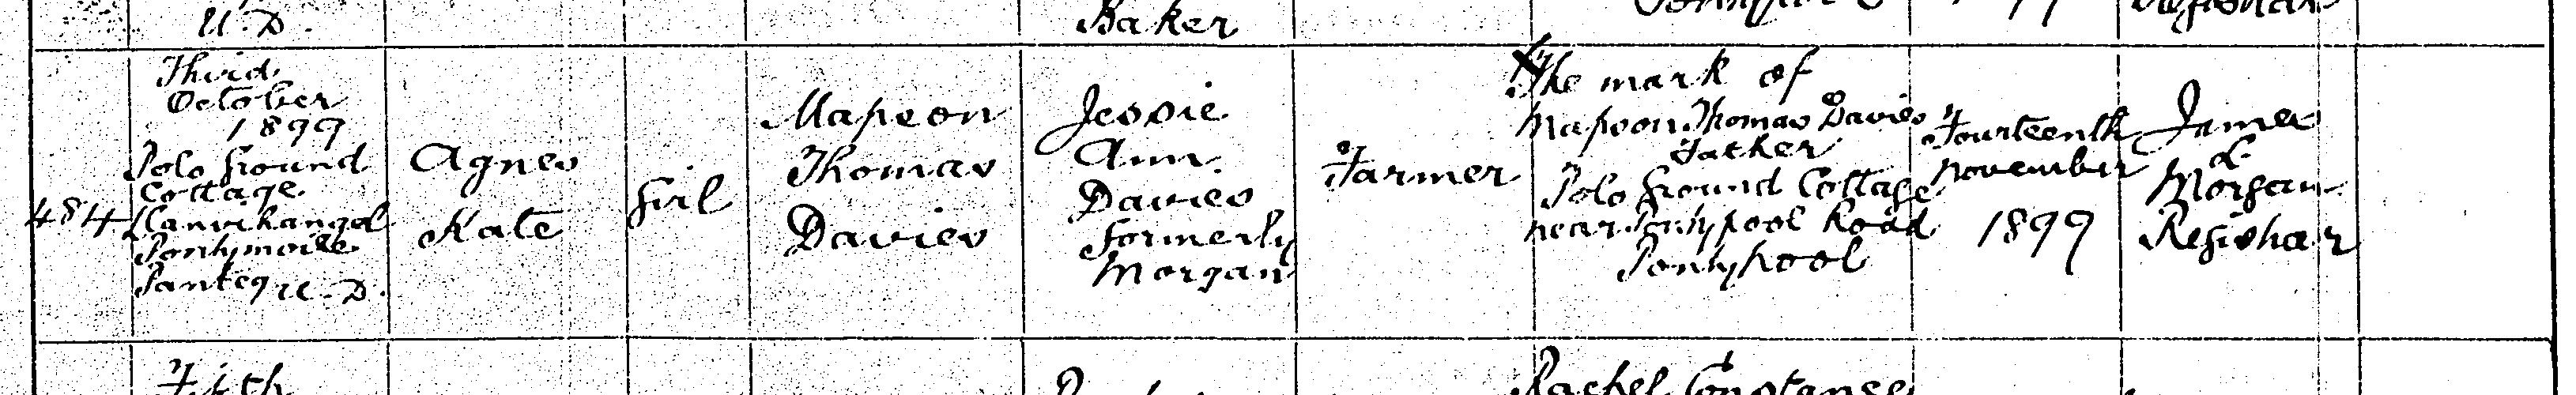 U.D.
Baker
484
Third
October
1899
Polo Ground
Cottage
Llanvihangel
Pontymoile
Panteg U.D.
Agnes
Kate
Girl
Mapson
Thomas
Davies
Jessie
Ann
Davies
formerly
Morgan
Farmer
X The mark of
Mapson Thomas Davies
Father
Polo Ground Cottage
near Pontypool Road
Pontypool
Fourteenth
November
1899
James
L
Morgan
Registrar
Rachel Constance